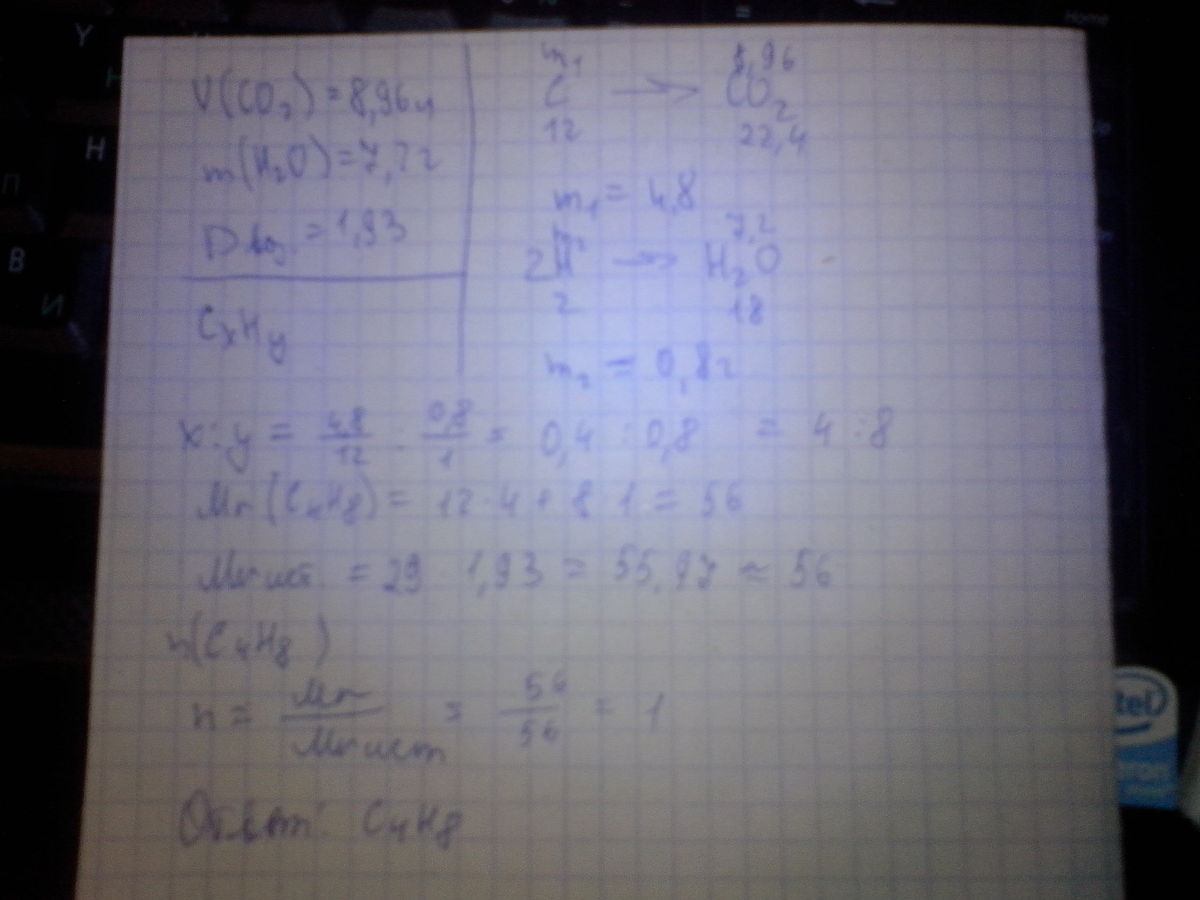 V(CO₂) = 8,96 л
m(H₂O) = 7,2 г
D воз. = 1,93
CxHy
m₁ 8,96
C → CO₂
12 22,4
m₁ = 4,8
7,2
2H → H₂O
2 18
m₂ = 0,8 г
x : y = 4,8/12 : 0,8/1 = 0,4 : 0,8 = 4 : 8
Mr(C₄H₈) = 12 · 4 + 8 · 1 = 56
Mr ист. = 29 · 1,93 = 55,97 ≈ 56
n(C₄H₈)
n = Mr/Mr ист = 56/56 = 1
Ответ: C₄H₈
Y
H
П
B
И
Home
intel